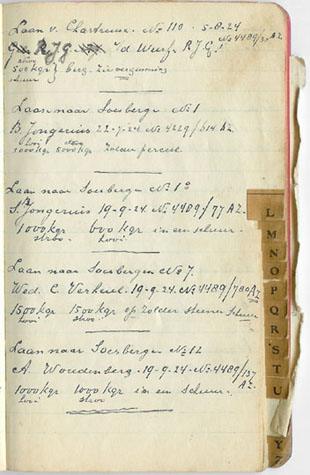 Laan v. Chartreuse. No 110. 5-8-24
R.J.G. v/d Werf. R.J.G. No 4489/ AZ
stroo
500 kgr } berg. Zie vergunning
schuur
Laan naar Soesbergen No 1
B. Jongerius 22-7-24 No 4229/614 AZ.
hooi stroo
5000 kgr 5000 kgr Zolder perceel
Laan naar Soesbergen No 1a
S. Jongerius 19-9-24. No 4489/77 AZ.
1000 kgr 600 kgr in een schuur.
stroo. hooi
Laan naar Soesbergen No 7.
Wed. C. Verkerk. 19-9-24. No 4489/780 AZ
1500 kgr 1500 kgr op zolder steenen schuur
hooi stroo
Laan naar Soesbergen No 12
A. Woudenberg. 19-9-24. No 4489/137
AZ.
1000 kgr 1000 kgr in een schuur.
hooi stroo
L
M
N
O
P
Q
R
S
T
U
Y
Z